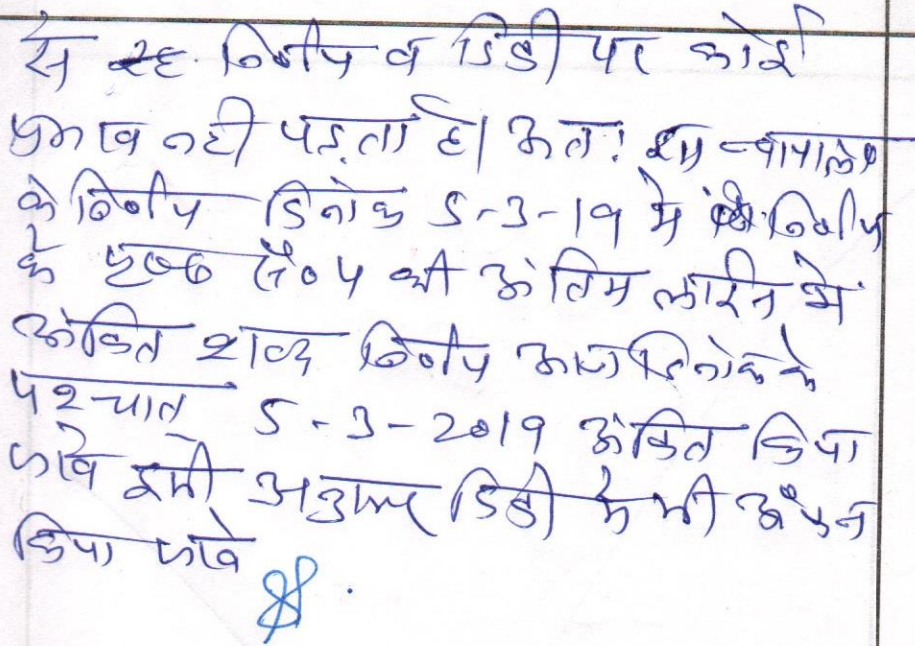 से निर्णय व डिक्री पर कोई
प्रभाव नही पड़ता है। अतः इस न्यायालय
के निर्णय दिनांक 5-3-19 मे निर्णय
के पृष्ठ सं० 4 की अंतिम लाईन में
अंकित शब्द निर्णय आज दिनांक के
पश्चात 5-3-2019 अंकित किया
जावे इसी अनुसार डिक्री मे भी अंकन
किया जावे